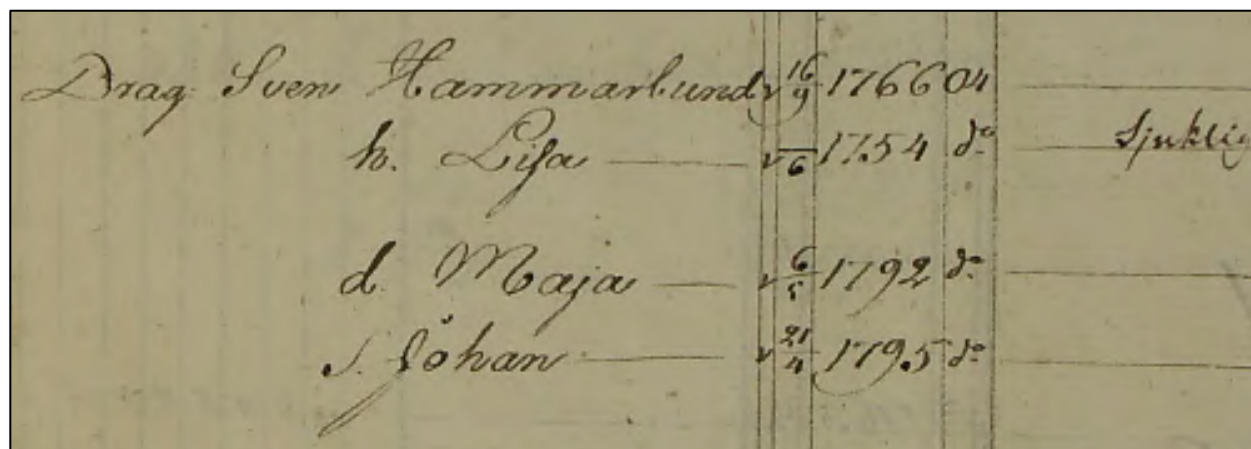 Drag. Sven Hammarlund v 16/9 1766 04
h. Lisa v /6 1754 do Sjuklig
d. Maja v 6/5 1792 do
S. Johan v 21/4 1795 do